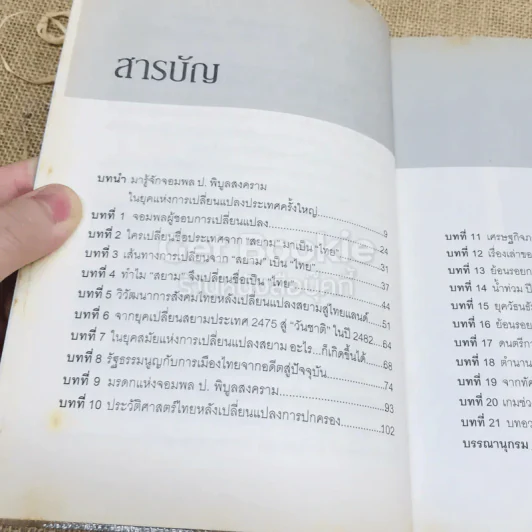 สารบัญ
บทนำ มารู้จักจอมพล ป. พิบูลสงคราม
ในยุคแห่งการเปลี่ยนแปลงประเทศครั้งใหญ่
บทที่ 1 จอมพลผู้ชอบการเปลี่ยนแปลง 9
บทที่ 2 ใครเปลี่ยนชื่อประเทศจาก "สยาม" มาเป็น "ไทย" 24
บทที่ 3 เส้นทางการเปลี่ยนจาก "สยาม" เป็น "ไทย" 31
บทที่ 4 ทำไม "สยาม" จึงเปลี่ยนชื่อเป็น "ไทย" 37
บทที่ 5 วิวัฒนาการสังคมไทยหลังเปลี่ยนแปลงสยามสู่ไทยแลนด์ 44
บทที่ 6 จากยุคเปลี่ยนสยามประเทศ 2475 สู่ "วันชาติ" ในปี 2482 51
บทที่ 7 ในยุคสมัยแห่งการเปลี่ยนแปลงสยาม อะไร...ก็เกิดขึ้นได้ 64
บทที่ 8 รัฐธรรมนูญกับการเมืองไทยจากอดีตสู่ปัจจุบัน 68
บทที่ 9 มรดกแห่งจอมพล ป. พิบูลสงคราม 74
บทที่ 10 ประวัติศาสตร์ไทยหลังเปลี่ยนแปลงการปกครอง 93
102
บทที่ 11 เศรษฐกิจภ
บทที่ 12 เรื่องเล่าขอ
บทที่ 13 ย้อนรอยก
บทที่ 14 น้ำท่วม ปี
บทที่ 15 ยุควัธนธ
บทที่ 16 ย้อนรอย
บทที่ 17 ดนตรีกา
บทที่ 18 ตำนาน
บทที่ 19 จากทัศ
บทที่ 20 เกมช่ว
บทที่ 21 บทอว
บรรณานุกรม